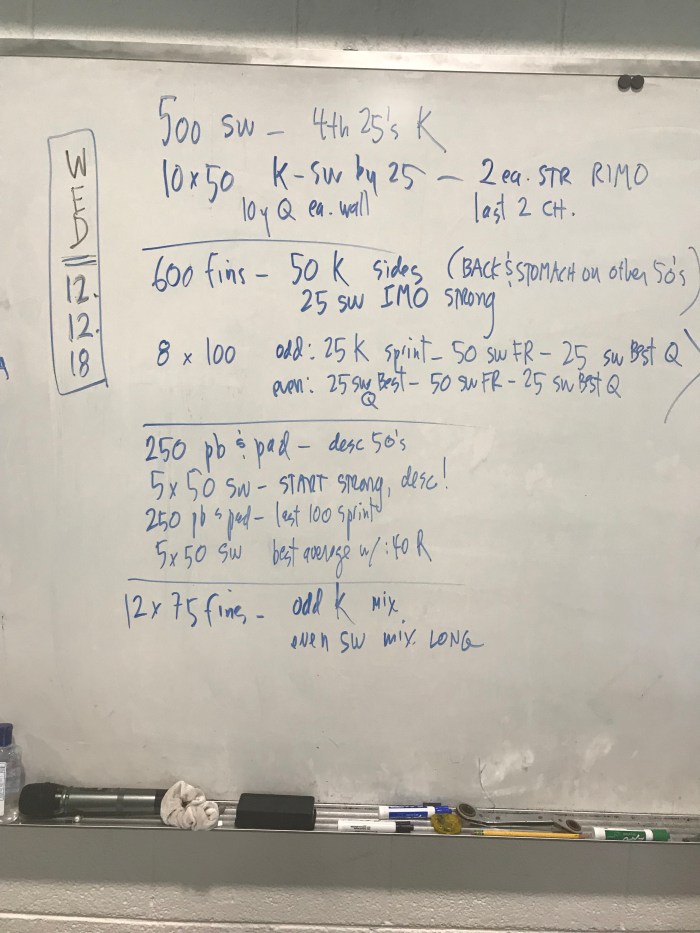 WED
12.
12.
18
500 SW - 4th 25's K
10 x 50 K-SW by 25 - 2 ea. STR RIMO
10y Q ea. wall last 2 CH.
600 fins - 50 K sides (BACK & STOMACH on other 50's)
25 SW IMO STRONG
8 x 100 odd: 25 K sprint - 50 SW FR - 25 SW BEST Q
even: 25 SW BEST - 50 SW FR - 25 SW BEST Q
Q
250 pb & pad - desc 50's
5 x 50 SW - START STRONG, desc!
250 pb & pad - last 100 sprint
5 x 50 SW best average w/ :40 R
12 x 75 fins - odd K mix
even SW mix. LONG